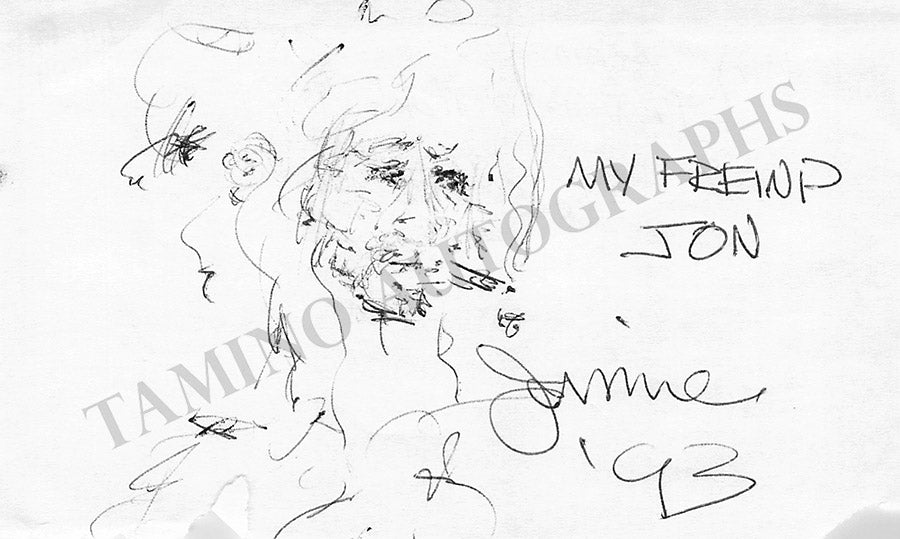 MY FREIND
JON
TAMINO AUTOGRAPHS
Jimmie
'93